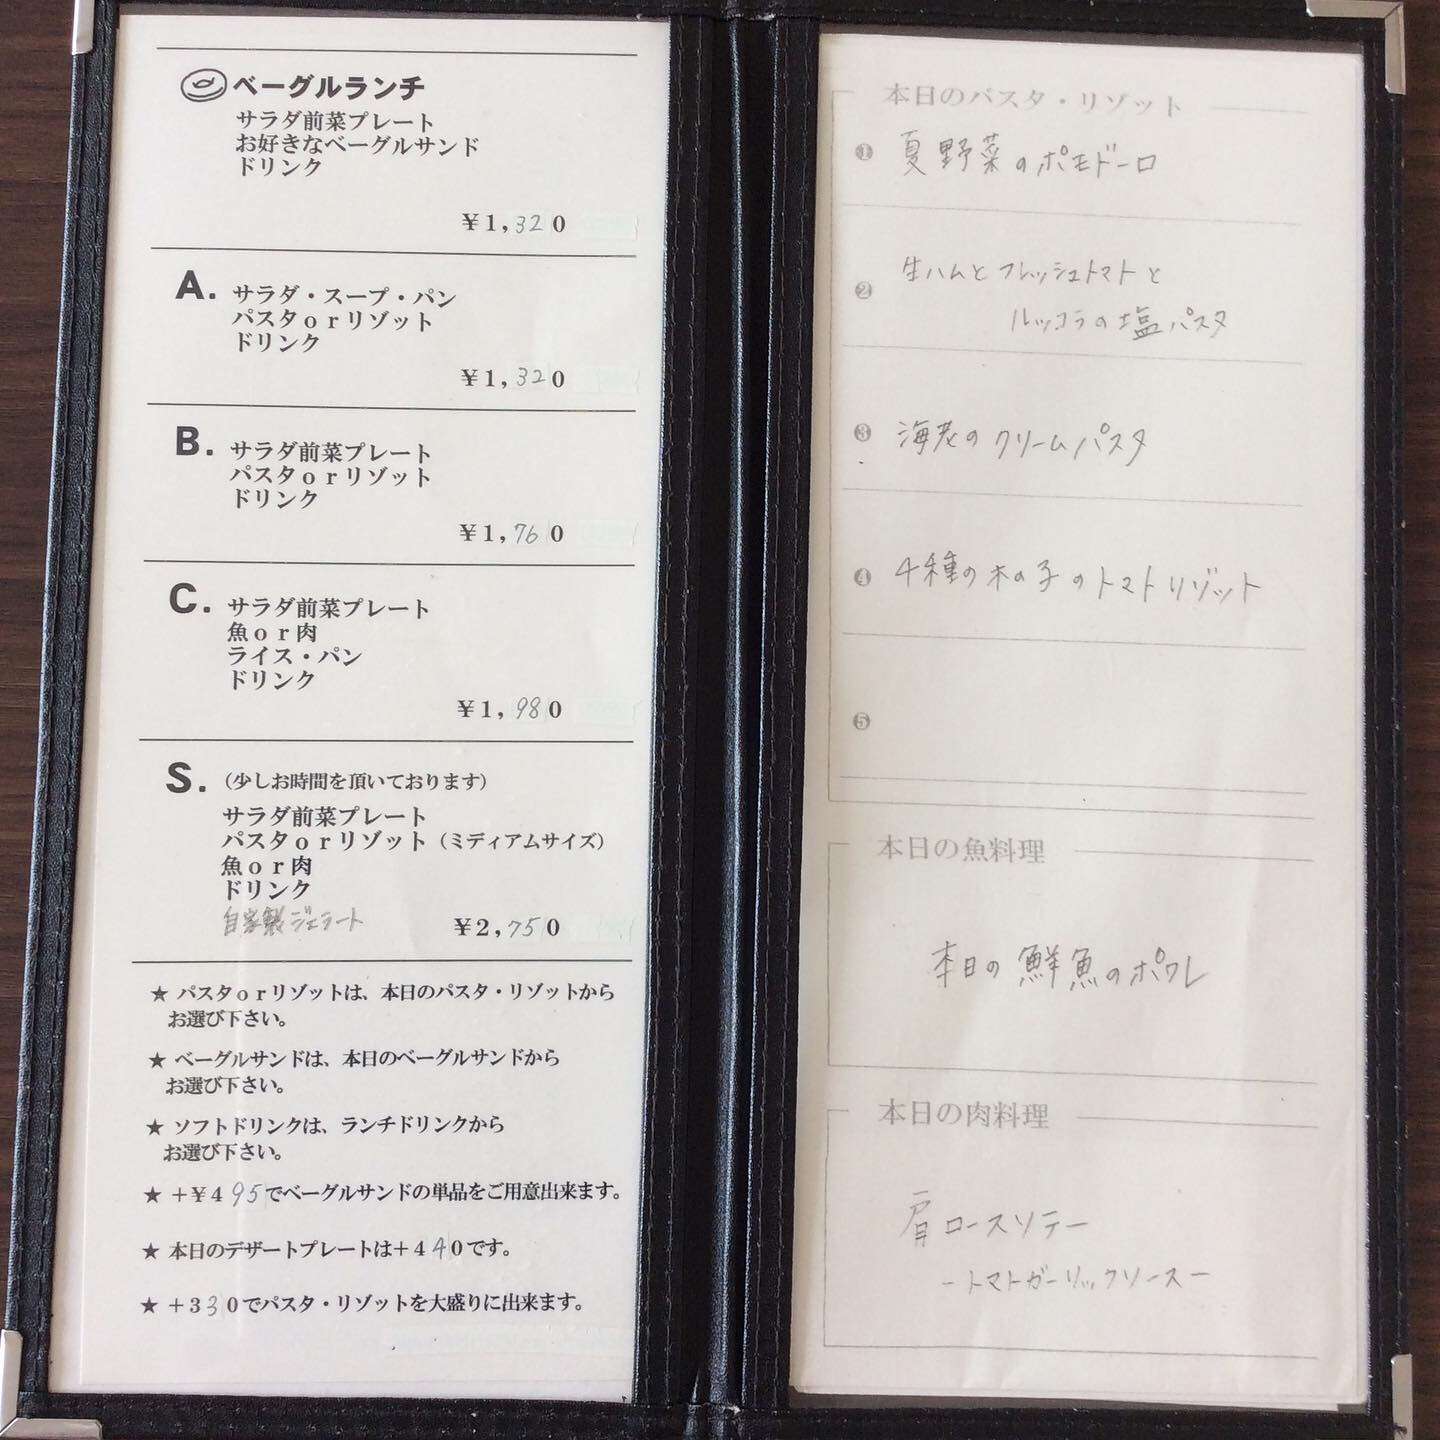 ベーグルランチ
サラダ前菜プレート
お好きなベーグルサンド
ドリンク
￥1,320
A. サラダ・スープ・パン
パスタorリゾット
ドリンク
￥1,320
B. サラダ前菜プレート
パスタorリゾット
ドリンク
￥1,760
C. サラダ前菜プレート
魚or肉
ライス・パン
ドリンク
￥1,980
S.（少しお時間を頂いております）
サラダ前菜プレート
パスタorリゾット（ミディアムサイズ）
魚or肉
ドリンク
自家製ジェラート
￥2,750
★ パスタorリゾットは、本日のパスタ・リゾットから
お選び下さい。
★ ベーグルサンドは、本日のベーグルサンドから
お選び下さい。
★ ソフトドリンクは、ランチドリンクから
お選び下さい。
★ ＋￥495でベーグルサンドの単品をご用意出来ます。
★ 本日のデザートプレートは＋440です。
★ ＋330でパスタ・リゾットを大盛りに出来ます。
本日のパスタ・リゾット
❶ 夏野菜のポモドーロ
❷ 生ハムとフレッシュトマトと
ルッコラの塩パスタ
❸ 海老のクリームパスタ
❹ 4種の木の子のトマトリゾット
❺
本日の魚料理
本日の鮮魚のポワレ
本日の肉料理
肩ロースソテー
－トマトガーリックソース－